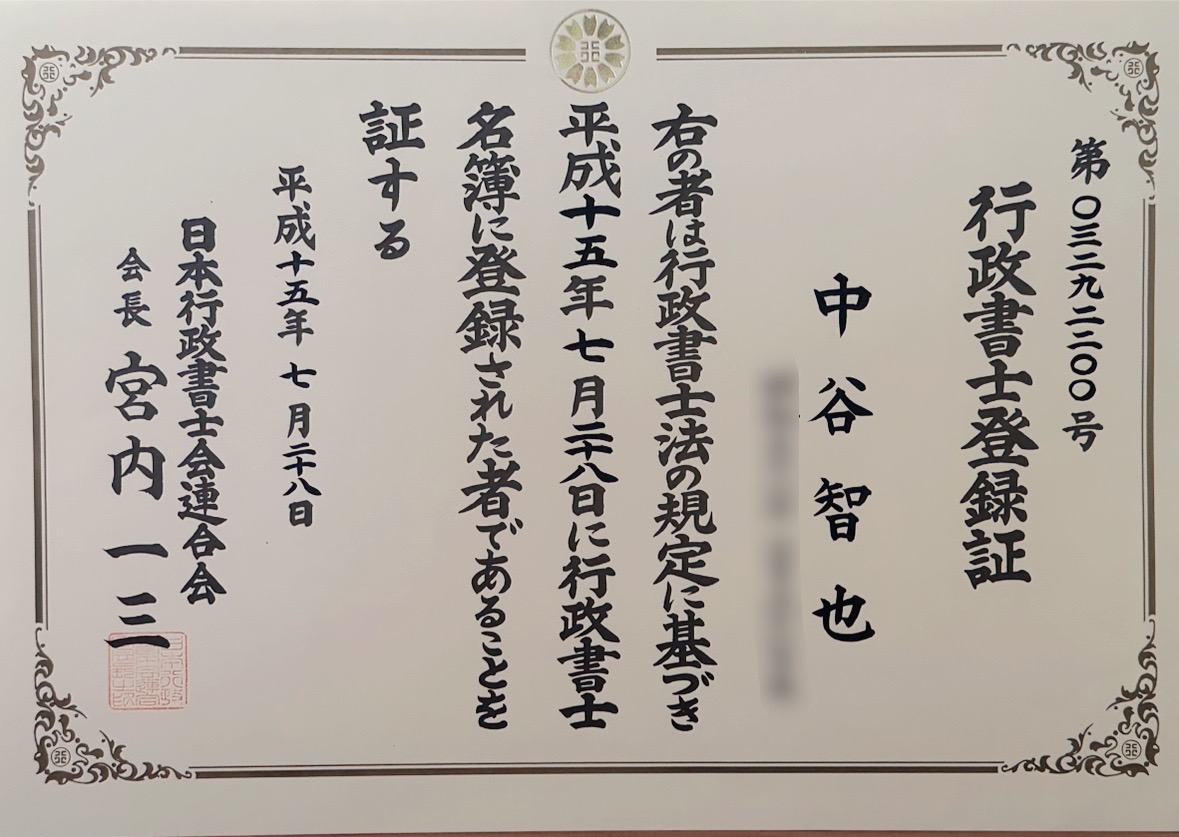 第〇三二九二二〇〇号
行政書士登録証
中谷智也
右の者は行政書士法の規定に基づき
平成十五年七月二十八日に行政書士
名簿に登録された者であることを
証する
平成十五年七月二十八日
日本行政書士会連合会
会長 宮内一三